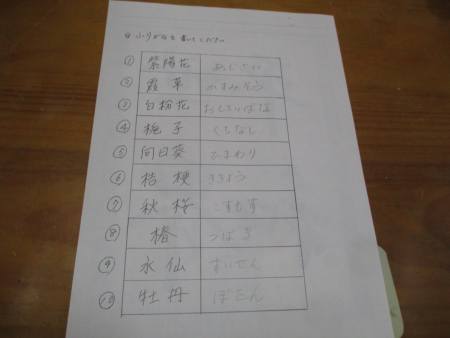 ふりがなを書いてください
① 紫陽花 あじさい
② 霞草 かすみそう
③ 白粉花 おしろいばな
④ 梔子 くちなし
⑤ 向日葵 ひまわり
⑥ 桔梗 ききょう
⑦ 秋桜 こすもす
⑧ 椿 つばき
⑨ 水仙 すいせん
⑩ 牡丹 ぼたん